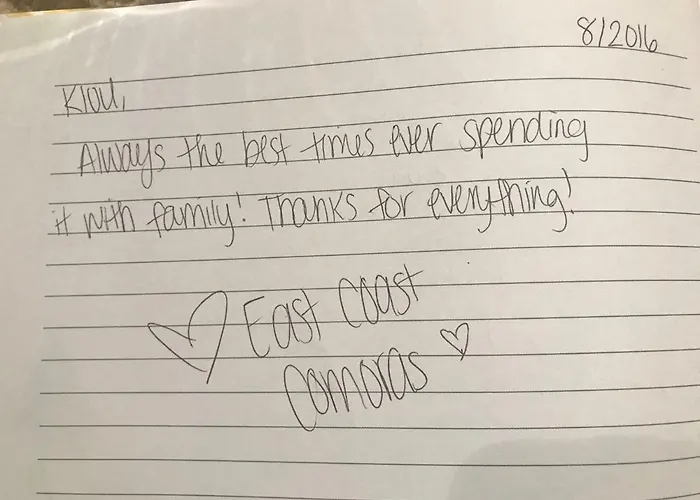 8/2016
Klou,
Always the best times ever spending
it with family! Thanks for everything!
East Coast
Comoras